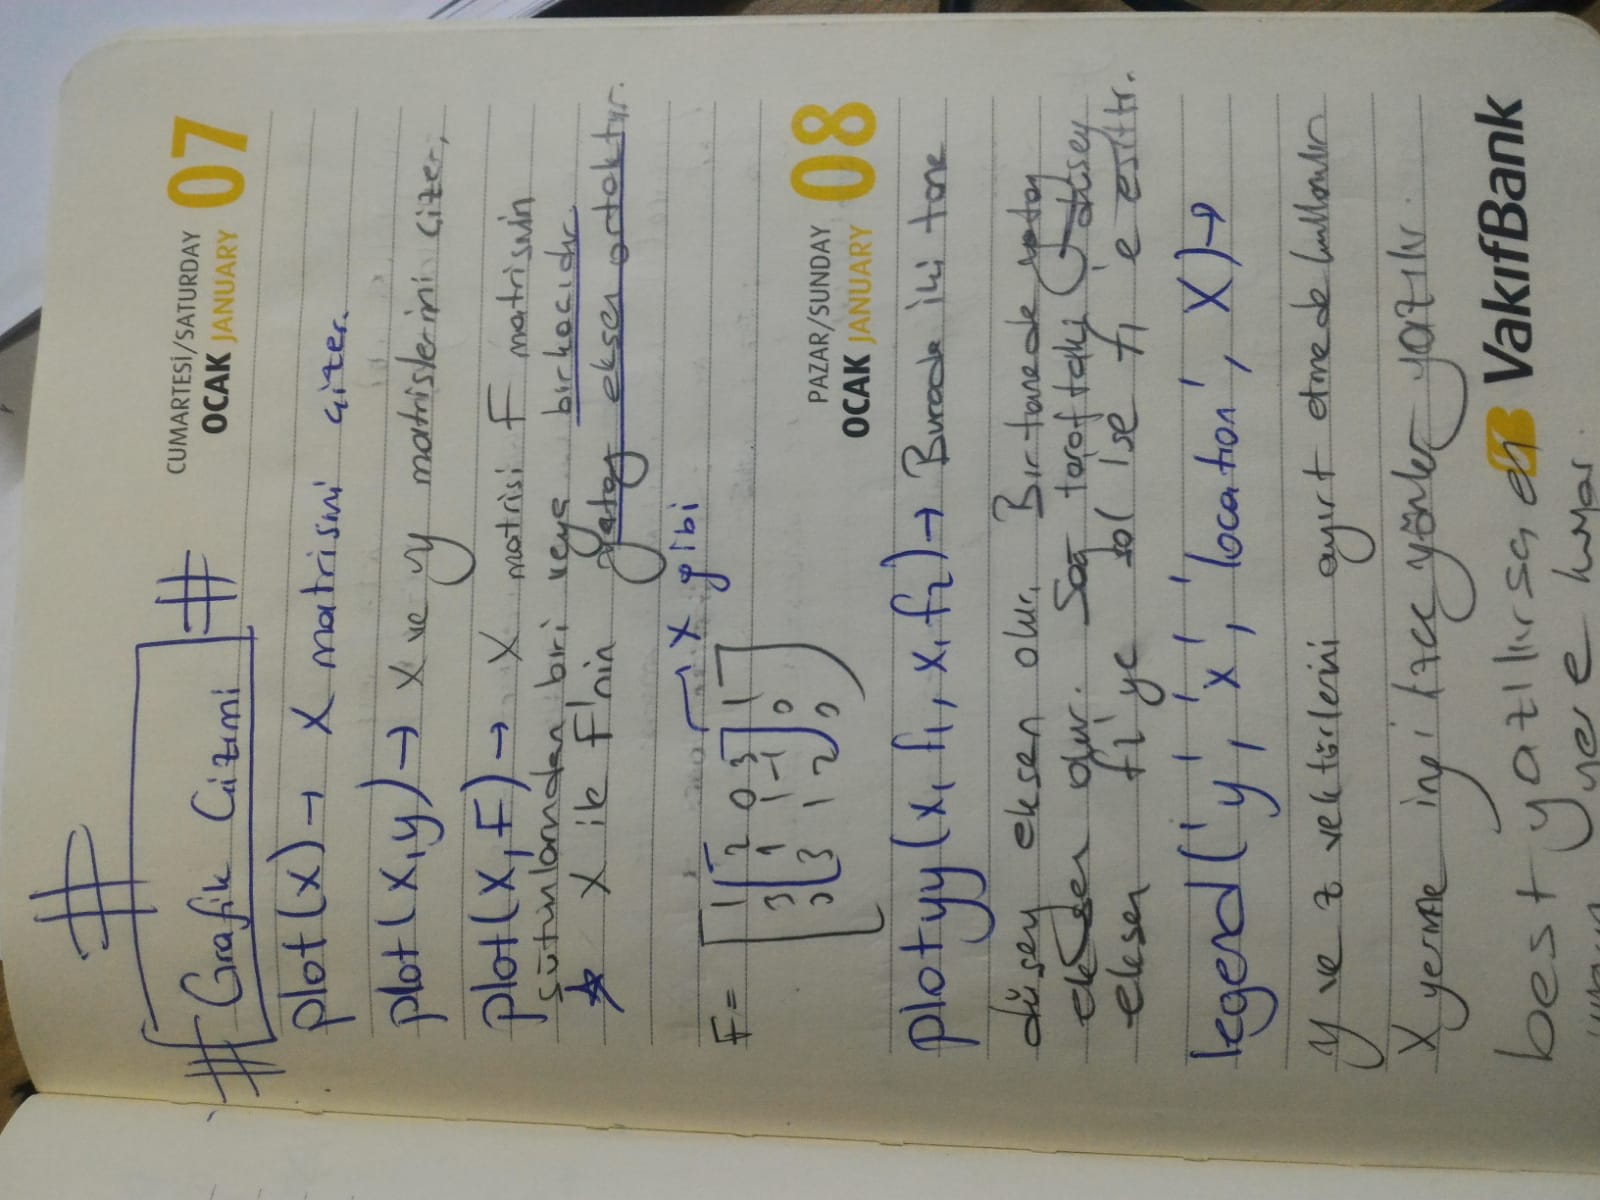 CUMARTESİ/SATURDAY
OCAK JANUARY 07
# Grafik Çizimi #
plot(x) → X matrisini çizer.
plot(x,y) → X ve y matrislerini çizer.
plot(x,F) → X matrisi F matrisinin
sütunlarından biri veya birkaçıdır.
☆ X ile F'nin yatay eksen ortaktır.
X gibi
F =
PAZAR/SUNDAY
OCAK JANUARY 08
plotyy(x,f1,x,f2) → Burada iki tane
düşey eksen olur. Bir tanede yatay
eksen olur. Sağ taraftaki düşey
eksen f2'ye sol ise f1'e eşittir.
legend('y','x','location',X) →
y ve z vektörlerini ayırt etmede kullanılır
X yerine ingilizce yönler yazılır.
best yazılırsa en
yere koyar.
VakıfBank